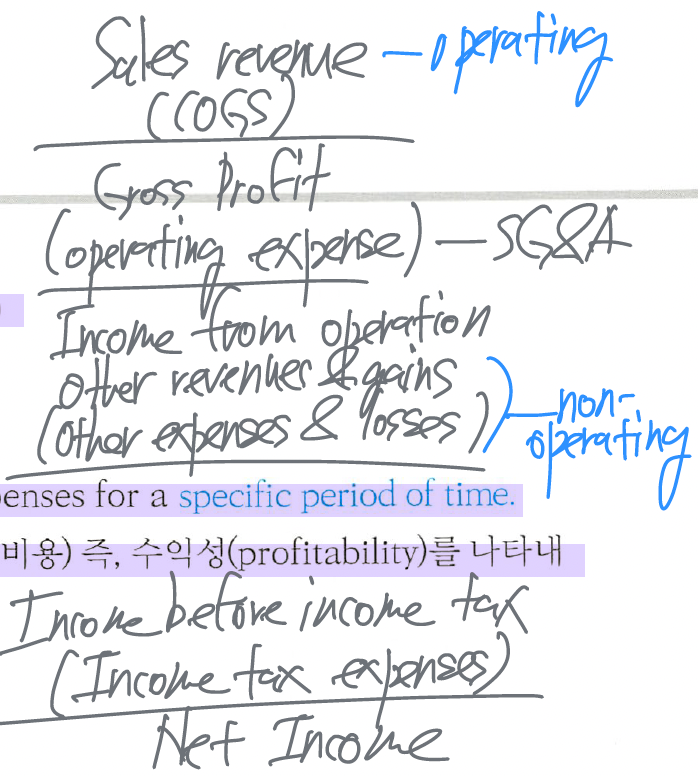 Sales revenue - operating
(COGS)
Gross Profit
(operating expense) - SG&A
Income from operation
other revenues & gains
(other expenses & losses) - non-operating
penses for a specific period of time.
비용) 즉, 수익성(profitability)를 나타내
Income before income tax
(Income tax expenses)
Net Income